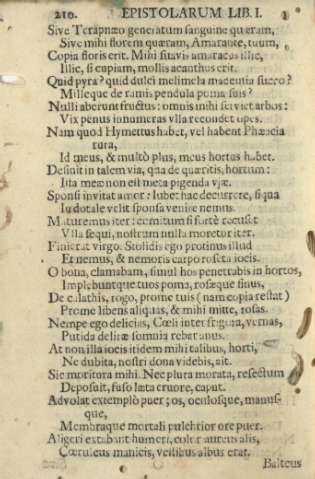 210. EPISTOLARUM LIB. I.
Sive Terapnæo generatum sanguine quæram,
Sive mihi florem quæram, Amarante, tuum,
Copia floris erit. Mihi si luvis amaracus illic,
Illic, si cupiam, mollis acanthus erit.
Quid pyra? quid dulci melimela madentia succo?
Mille que de ramis pendula poma suis?
Nulli aberunt fructus: omnis mihi serviet arbos:
Vix penus innumeras ulla recondet opes.
Nam quod Hymettus habet, vel habent Phæacia
rura,
Id meus, & multò plus, meus hortus habet.
Desinit in talem via, qua de quæritis, hortum:
Ista meæ non est meta pigenda viæ.
Sponsi invitat amor: lubet hac decurrere, si qua
In dotale velit sponsa venire nemus.
Maturemus iter: comitum si fortè recuset
Ulla sequi, nostrum nulla moretur iter.
Finierat virgo. Stolidis ego protinus illud
Et nemus, & nemoris carpo roseta jocis.
O bona, clamabam, simul hos penetrabis in hortos,
Implebuntque tuos poma, rosæque sinus,
De calathis, rogo, prome tuis (nam copia restat)
Prome libens aliquas, & mihi mitte, rosas.
Nempe ego delicias, Cœli inter frigora, vernas,
Putida deliræ somnia rebar anus.
At non illa jocis itidem mihi talibus, horti,
Ne dubita, nostri dona videbis, ait.
Sic moritura mihi. Nec plura morata, resectum
Deposuit, fuso læta cruore, caput.
Advolat extemplò puer; os, oculosque, manus-
que,
Membraque mortali pulchrior ore puer.
Aligeri extabant humeri, color aureus alis,
Cœruleus manicis, vestibus albus erat.
Balteus